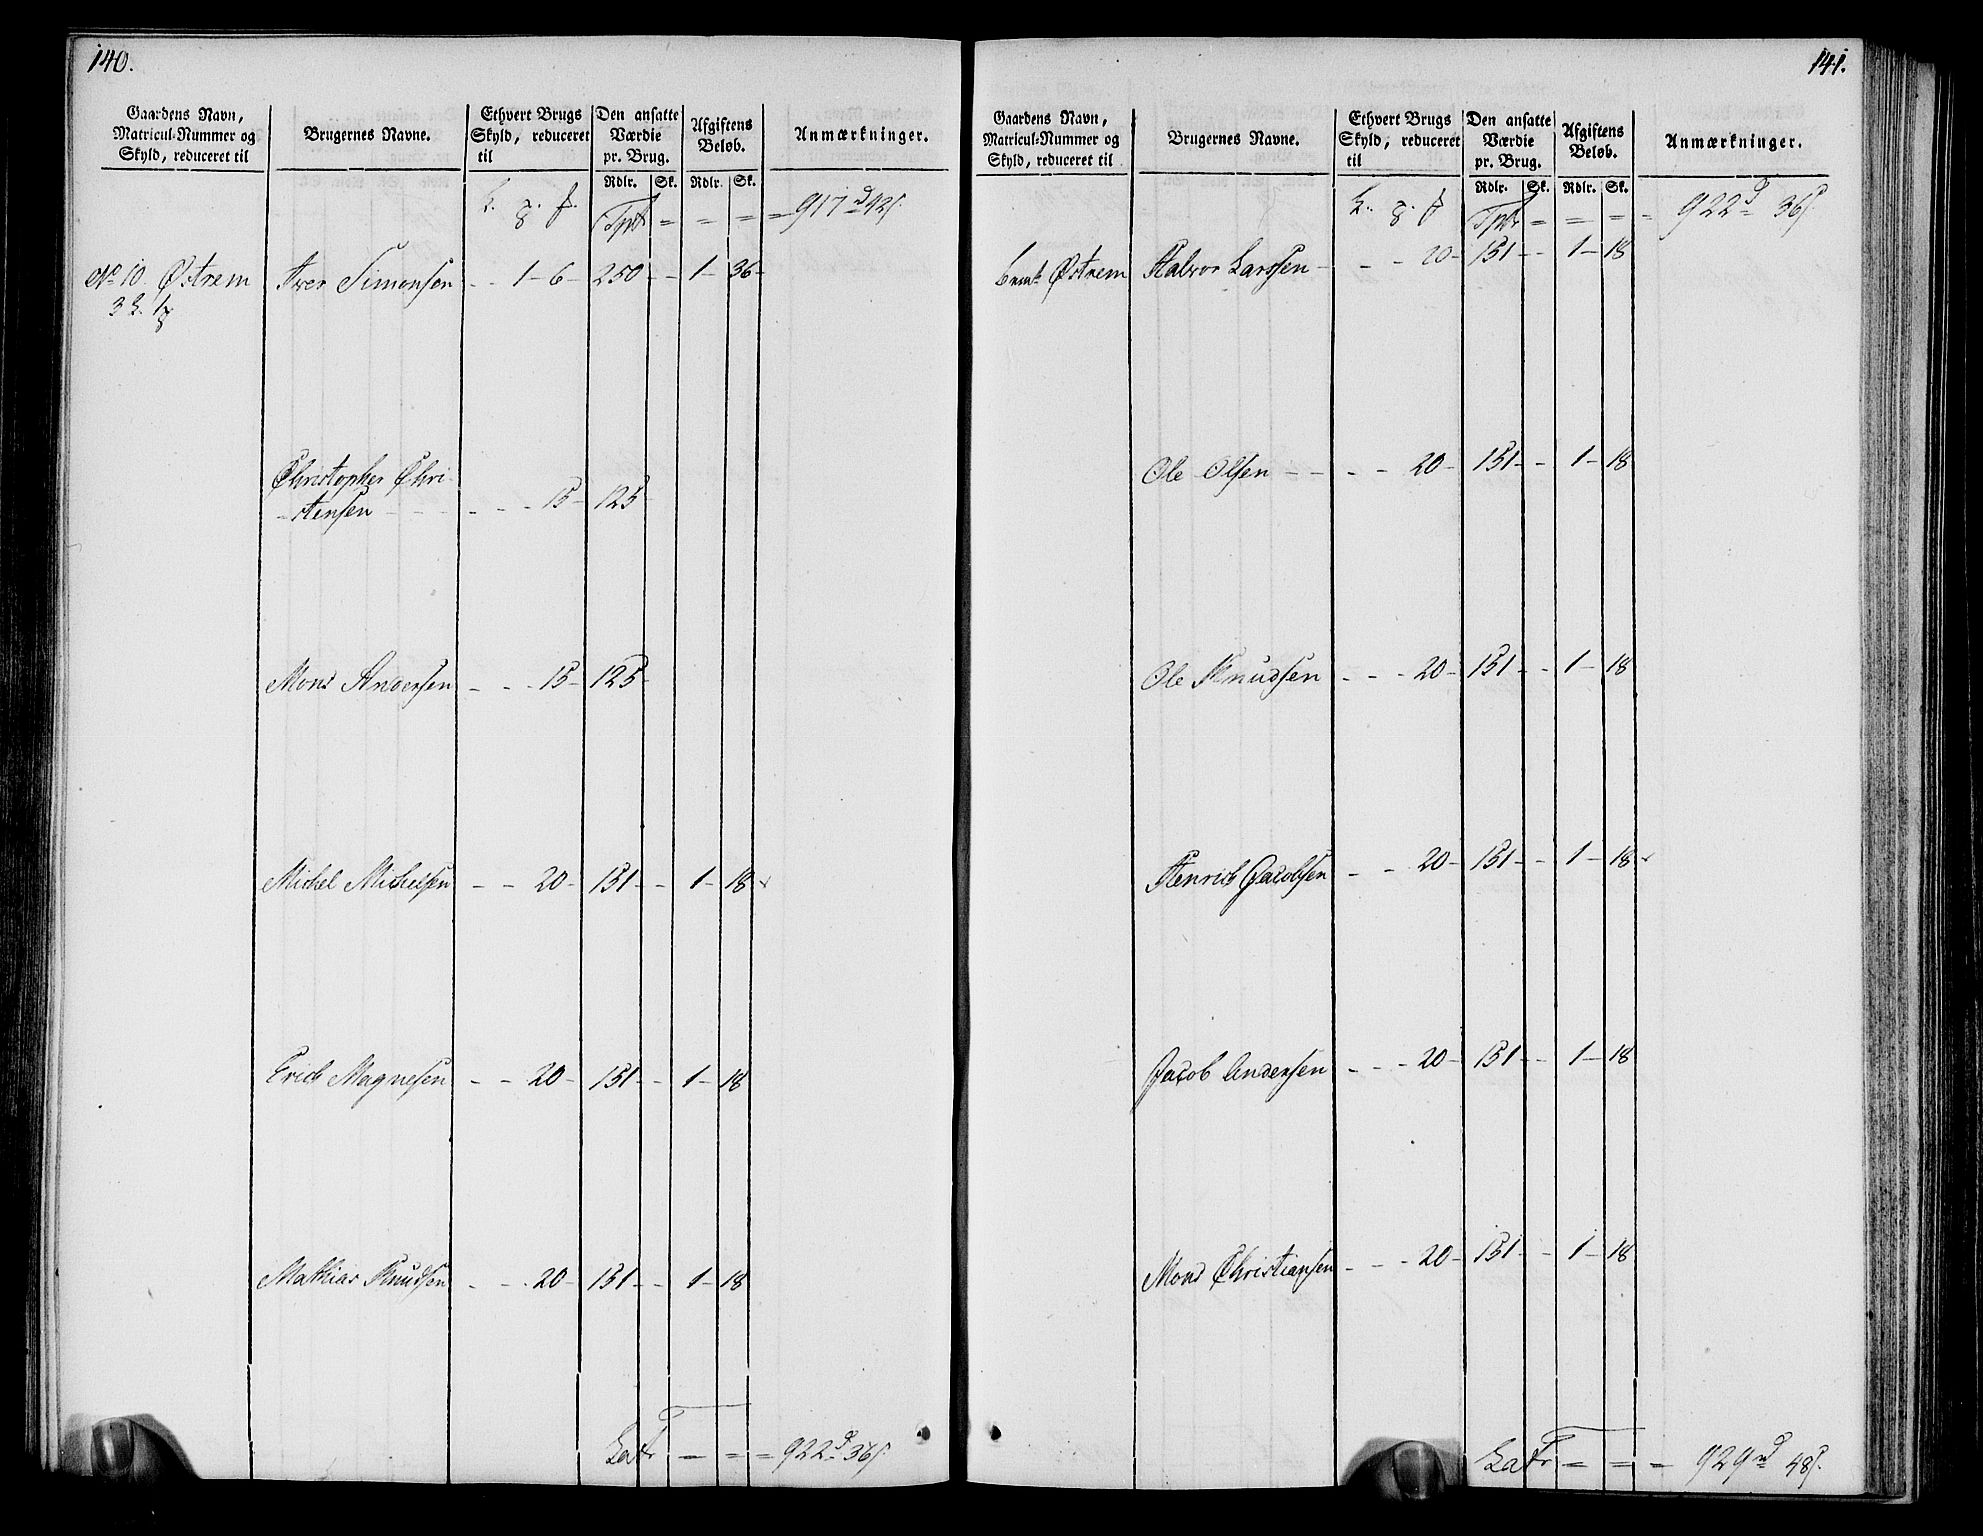 140.
Gaardens Navn, Matricul-Nummer og Skyld, reduceret til
Brugernes Navne.
Ethvert Brugs Skyld, reduceret til
Den ansatte Værdie pr. Brug.
Afgiftens Beløb.
Anmærkninger.
Rdlr. Sk. Rdlr. Sk.
Tpt = = = = 917 42
No 10. Østrem Iver Simonsen - - 1 - 6 - 250 - - 1 - 36 -
Christopher Chri-
-stensen - - - - - - 15 - 125
Mons Andersen - - - 15 - 125
Michel Michelsen - - 20 - 151 - - 1 - 18
Erich Magnesen - - 20 - 151 - - 1 - 18
Mathias Knudsen - - - 20 - 151 - - 1 - 18
Latr = = = 922 36
141.
Gaardens Navn, Matricul-Nummer og Skyld, reduceret til
Brugernes Navne.
Ethvert Brugs Skyld, reduceret til
Den ansatte Værdie pr. Brug.
Afgiftens Beløb.
Anmærkninger.
Rdlr. Sk. Rdlr. Sk.
Tptr = = = = 922 36
Østrem Halvor Larssen - - - 20 - 151 - - 1 - 18
Ole Olsen - - - - 20 - 151 - - 1 - 18
Ole Knudsen - - - 20 - 151 - - 1 - 18
Henrich Jacobsen - - 20 - 151 - - 1 - 18
Jacob Andersen - - - 20 - 151 - - 1 - 18
Mons Christiansen - - - 20 - 151 - - 1 - 18
Latr = = = 929 48